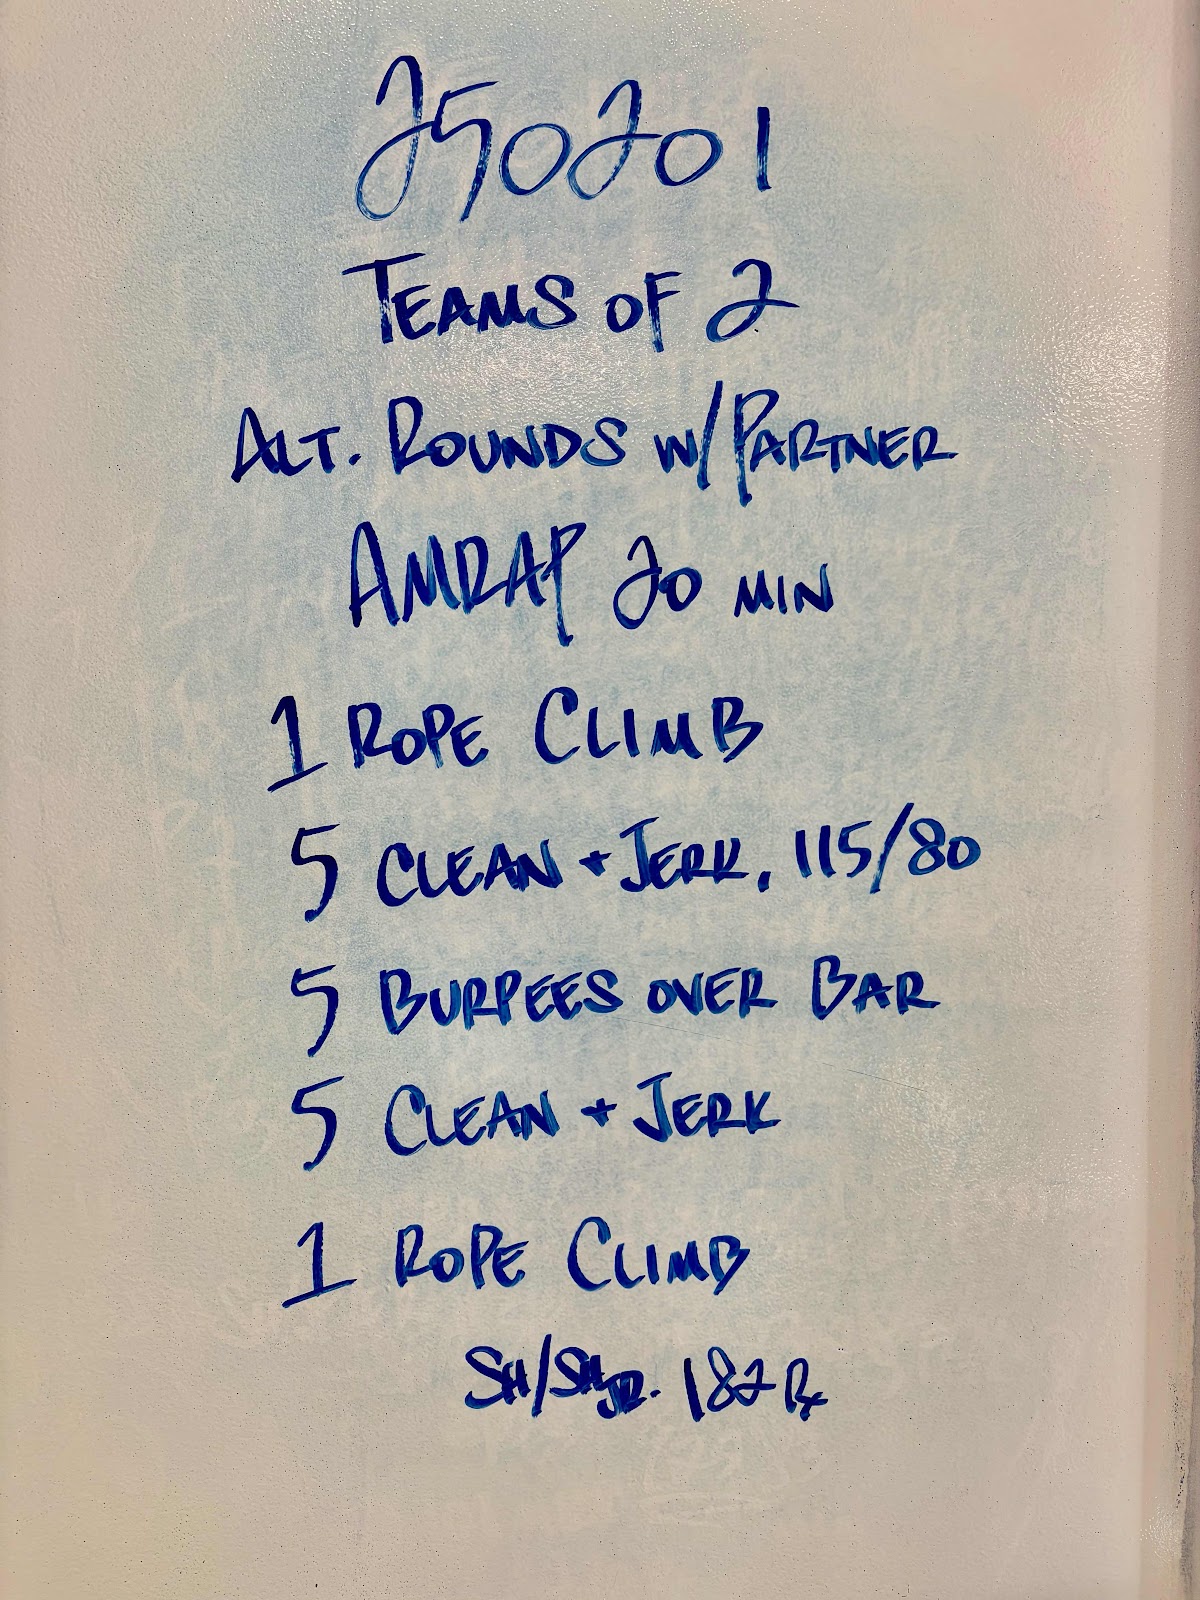 250201
TEAMS OF 2
ALT. ROUNDS W/PARTNER
AMRAP 20 MIN
1 ROPE CLIMB
5 CLEAN + JERK, 115/80
5 BURPEES OVER BAR
5 CLEAN + JERK
1 ROPE CLIMB
SH/SH JR. 182 Rx